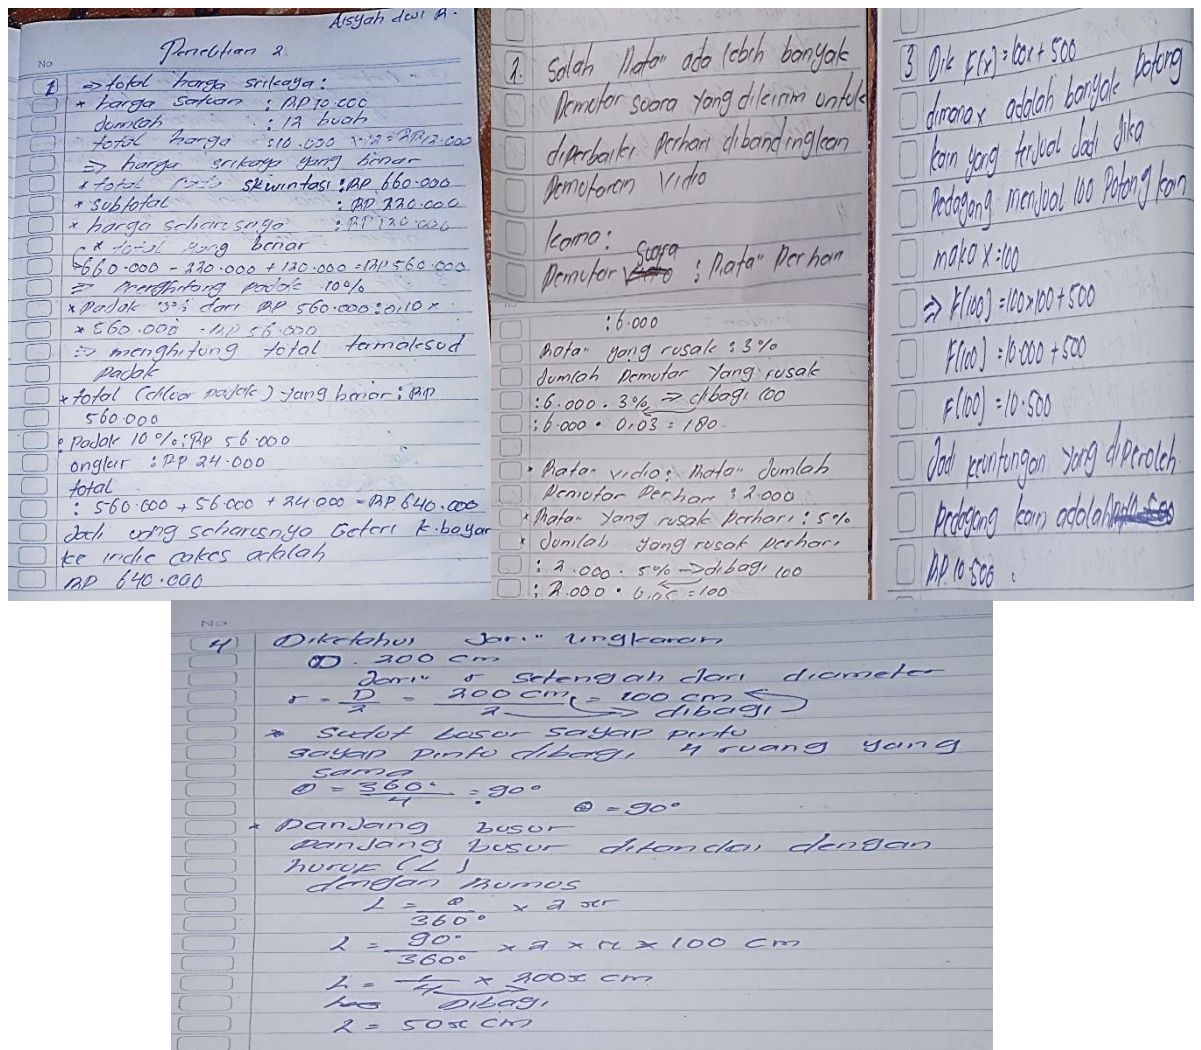 Aisyah dewi R.
Penelitian 2
No
1 => total harga srikaya:
* harga satuan : RP 10.000
Jumlah : 12 buah
total harga :10.000 x 12 = RP12.000
=> harga srikaya yang benar
* total skwintasi : RP 660.000
* subtotal : RP 220.000
* harga seharusnya : RP 120.000
* total yang benar
660.000 - 220.000 + 120.000 = RP 560.000
=> menghitung Pajak 10%
* Pajak dari RP 560.000 : 0,10 x
* 560.000 = RP 56.000
=> menghitung total termaksud
Pajak
* total (diluar pajak) yang benar : RP
560.000
: Pajak 10% : RP 56.000
ongkir : RP 24.000
total
: 560.000 + 56.000 + 24.000 = RP 640.000
Jadi uang seharusnya Geteri k.bayar
ke indie cakes adalah
RP 640.000
2. Salah Rata" ada lebih banyak
Pemutar suara yang dikirim untuk
diperbaiki Perhari dibandingkan
Pemutaran Vidio
karna:
Pemutar Suara : Rata" Perhari
: 6.000
Rata" yang rusak : 3%
Jumlah Pemutar Yang rusak
: 6.000 . 3% => dibagi 100
: 6.000 . 0,03 = 180
* Rata" vidio : Rata" Jumlah
Pemutar Perhari : 2.000
* Rata" Yang rusak Perhari : 5%
* Jumlah yang rusak perhari
: 2.000 . 5% -> dibagi 100
: 2.000 . 0,05 = 100
3 Dik F(x) = 100x + 500
dimana x adalah banyak potong
kain yang terjual Jadi Jika
Pedagang menjual 100 Potong kain
maka x = 100
=> F(100) = 100x100 + 500
F(100) = 10.000 + 500
F(100) = 10.500
Jadi keuntungan yang diperoleh
pedagang kain adalah
RP 10.500.
No
4 Diketahui Jari" lingkaran
D. 200 cm
Jari" r setengah dari diameter
r = D/2 = 200 cm/2 = 100 cm
dibagi
* Sudut busur sayap pintu
sayap pintu dibagi 4 ruang yang
sama
θ = 360°/4 = 90°
θ = 90°
* Panjang busur
Panjang busur ditandai dengan
huruf (L)
dengan Rumos
L = θ/360° x 2 πr
L = 90°/360° x 2 x π x 100 cm
L = 1/4 x 200π cm
Dibagi
L = 50π cm